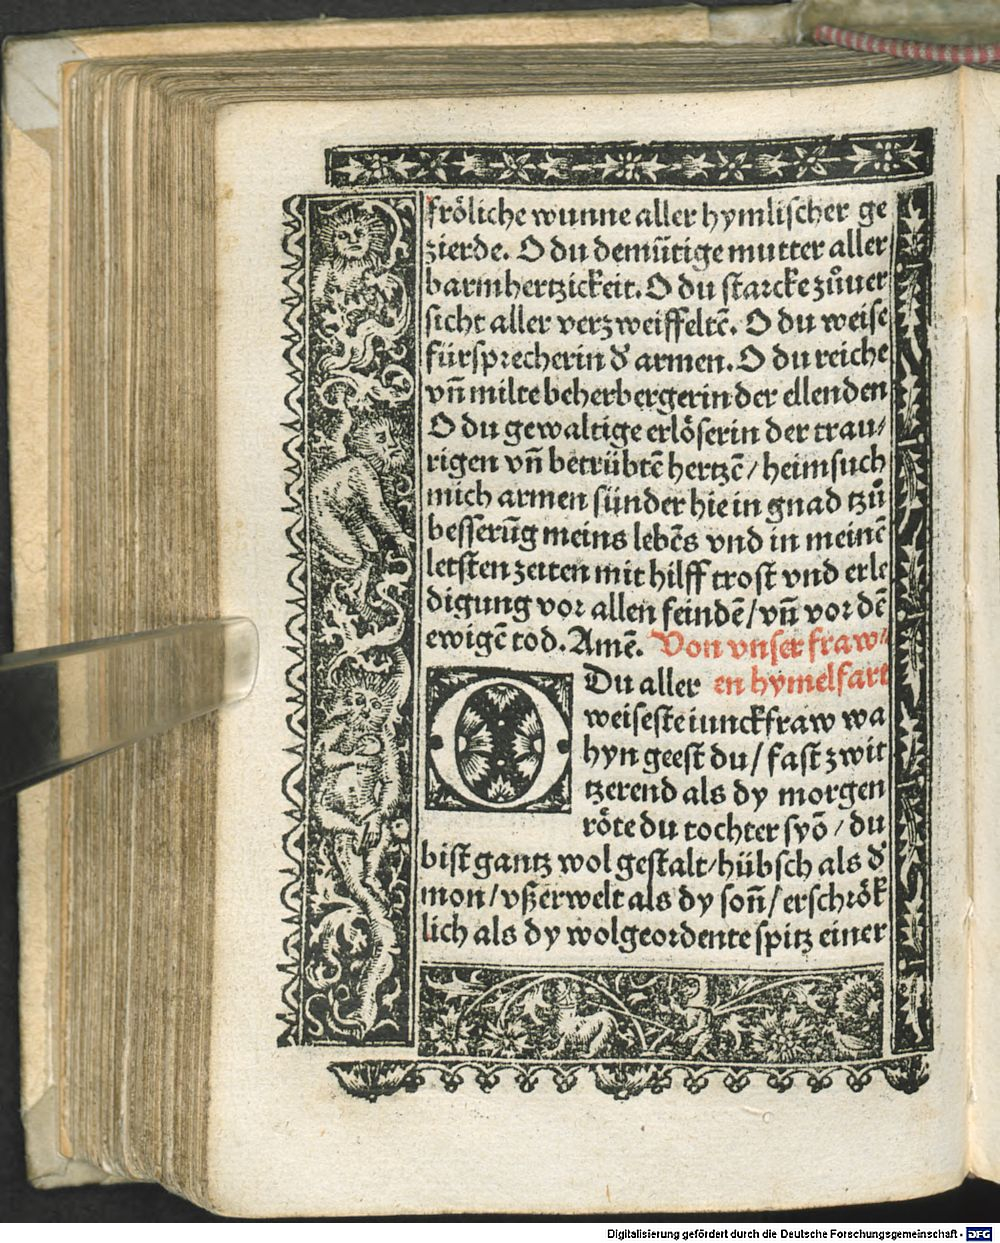 fröliche wunne aller hymlischer ge
zierde. O du demu̅tige mutter aller
barmhertzickeit. O du starcke zůuer
sicht aller verzweiffelte̅. O du weise
fürsprecherin d' armen. O du reiche
vn̅ milte beherbergerin der ellenden
O du gewaltige erlöserin der trau/
rigen vn̅ betrübte̅ hertze̅ / heimsuch
mich armen sünder hie in gnad tzů
besseru̅g meins lebe̅s vnd in meine̅
letsten zeiten mit hilff trost vnd erle
digung vor allen feinde̅ / vn̅ vor de̅
ewige̅ tod. Ame̅. Von vnser fraw/
en hymelfart
O Du aller
weiseste iunckfraw wa
hyn geest du / fast zwit
tzerend als dy morgen
röte du tochter syo̅ / du
bist gantz wol gestalt / hübsch als d'
mon / vßerwelt als dy son̅ / erschrök
lich als dy wolgeordente spitz einer
Digitalisierung gefördert durch die Deutsche Forschungsgemeinschaft - DFG